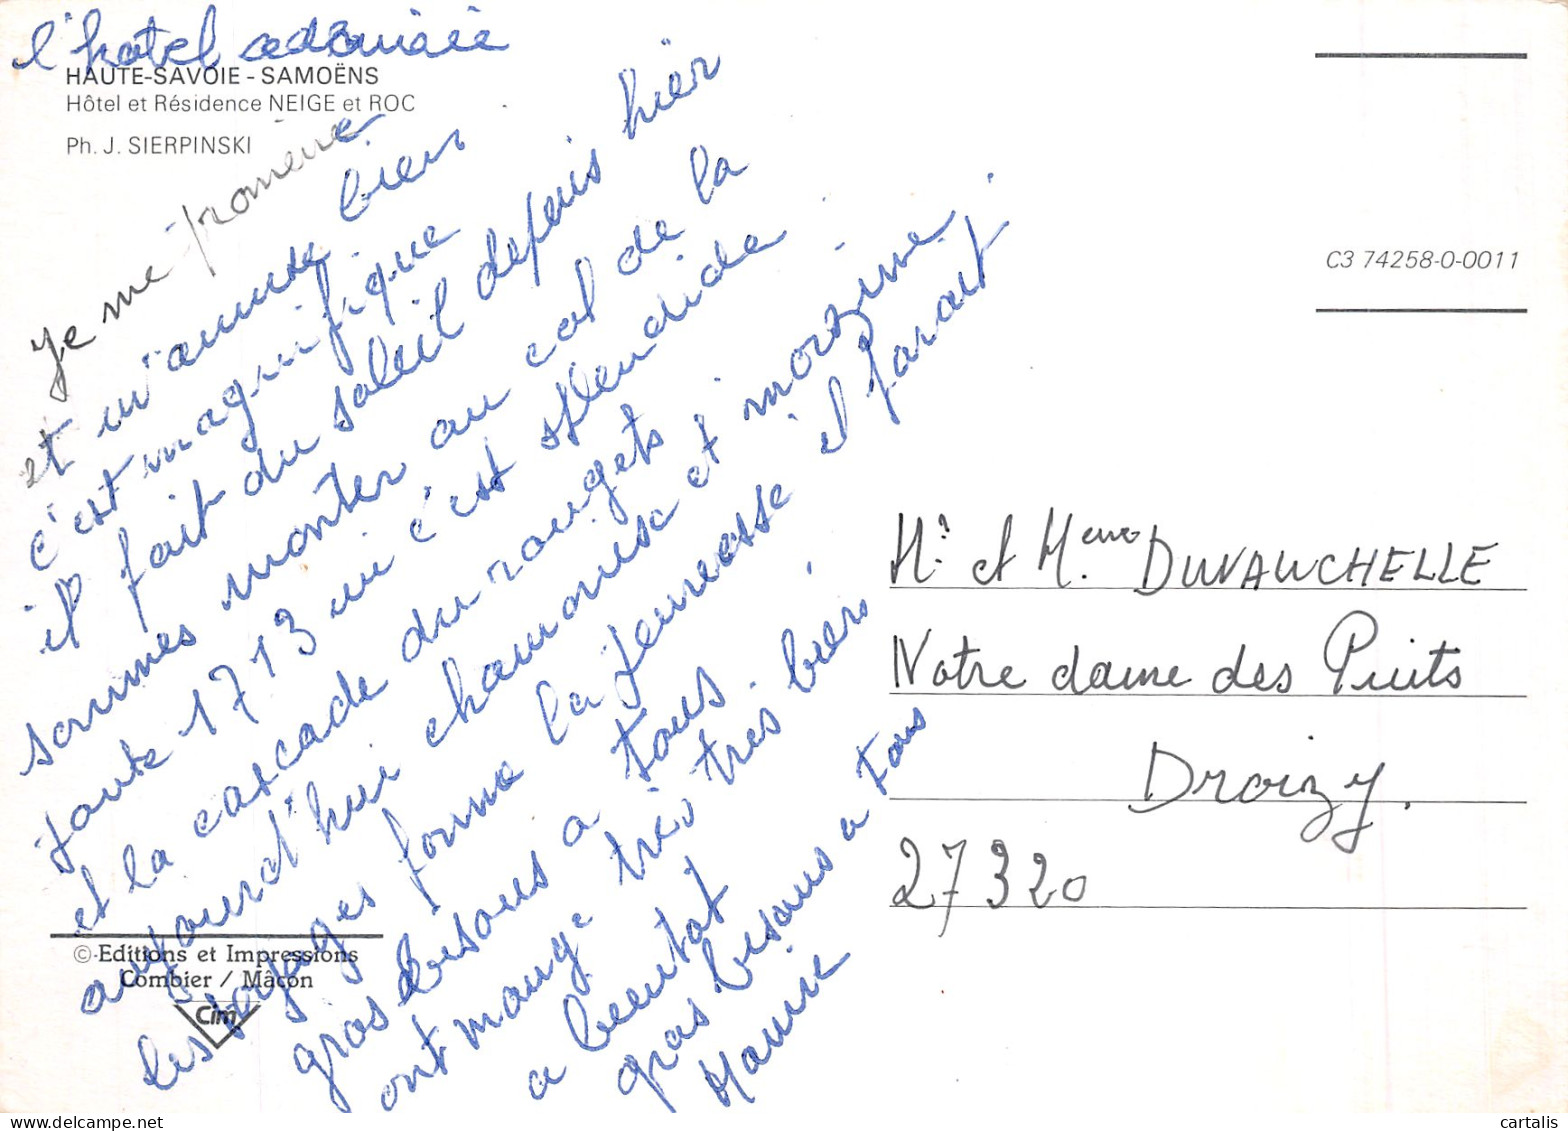 l'hotel
HAUTE-SAVOIE - SAMOËNS
Hôtel et Résidence NEIGE et ROC
Ph. J. SIERPINSKI
Je me promène
et m'amuse bien
c'est magnifique
il fait du soleil depuis hier
sommes monter au col de la
1713 m c'est splendide
et la cascade du rougets
aujourd'hui chamonise et morzine.
les voyages forme la jeunesse il parait
gros bisous a tous.
ont mange très très bien.
a beentot
gros bisous a tous
C3 74258-0-0011
Mr et Meme DUVAUCHELLE
Notre dame des Puits
Droizy.
27320
© Editions et Impressions
Combier / Mâcon
Cim
cartalis